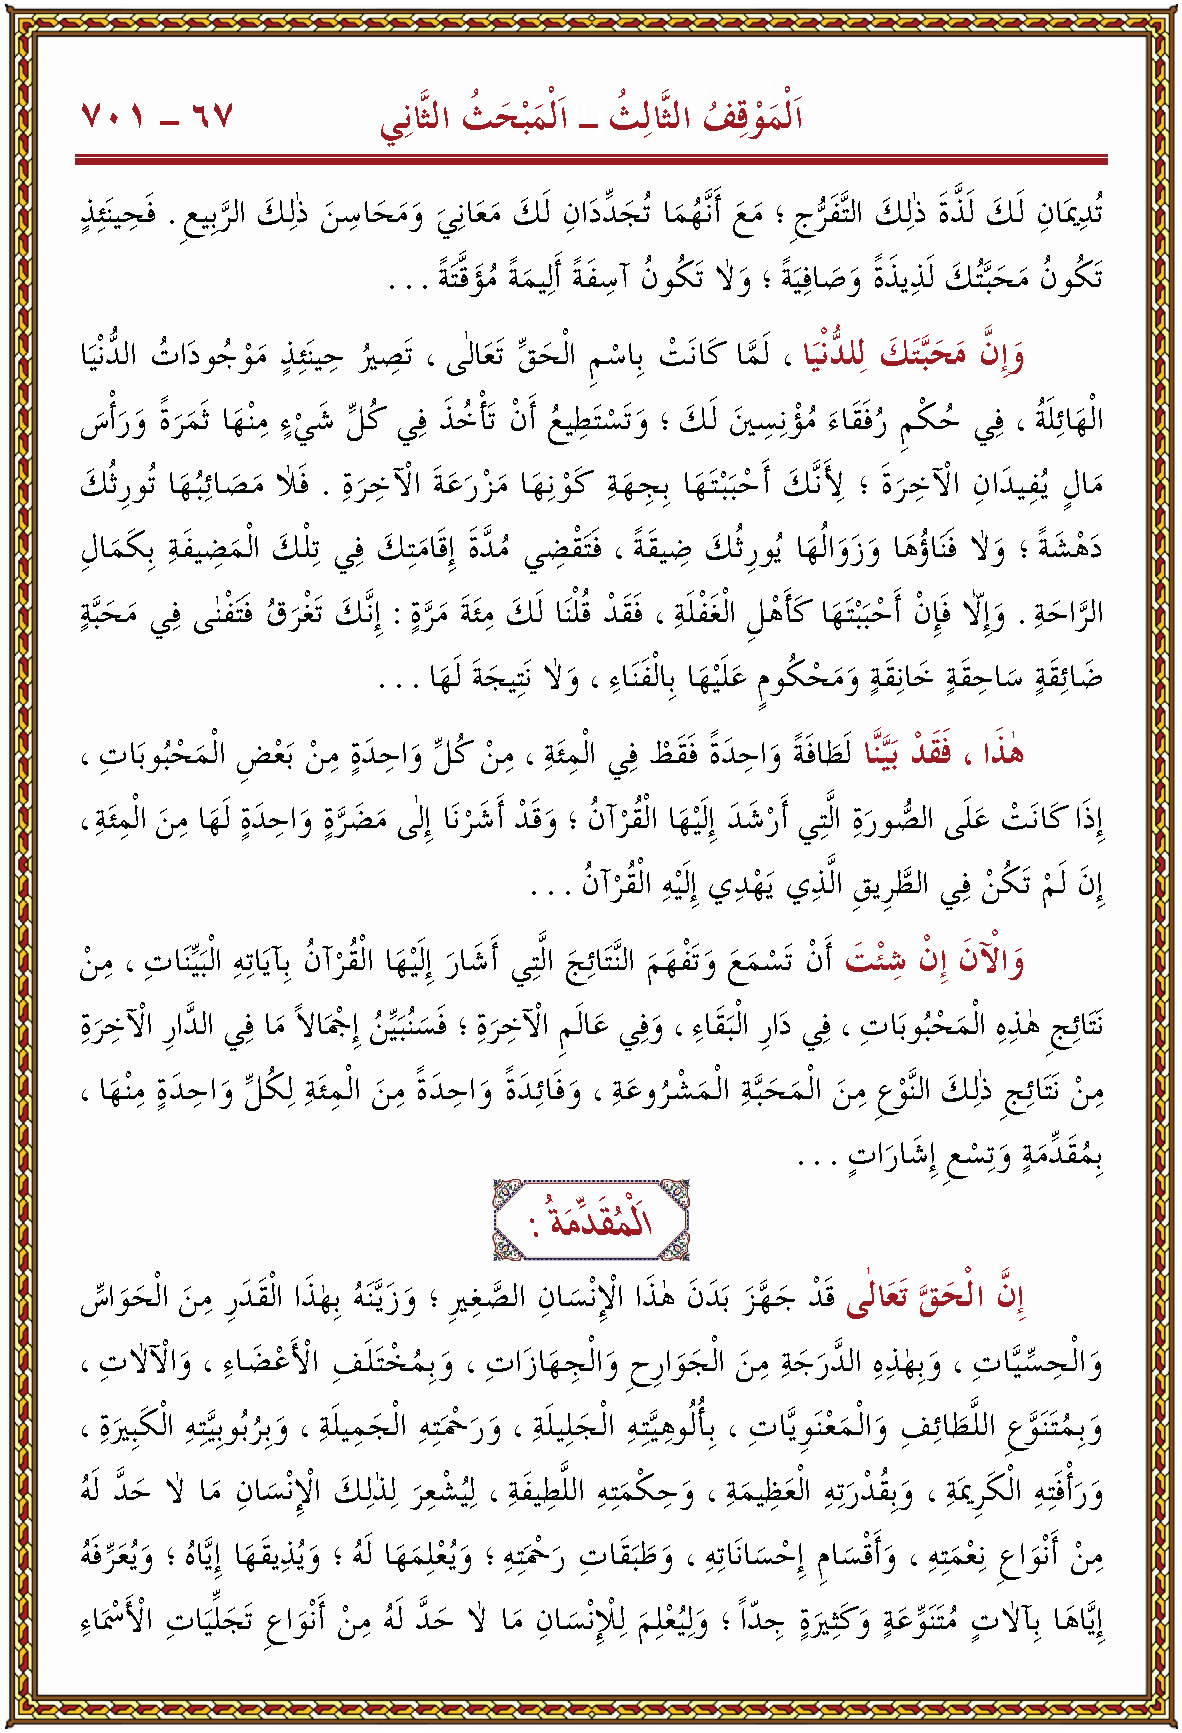 اَلْمَوْقِفُ الثَّالِثُ ـ اَلْمَبْحَثُ الثَّانِي ٦٧ ـ ٧٠١
تُدِيمَانِ لَكَ لَذَّةَ ذٰلِكَ التَّفَرُّجِ ؛ مَعَ أَنَّهُمَا تُجَدِّدَانِ لَكَ مَعَانِيَ وَمَحَاسِنَ ذٰلِكَ الرَّبِيعِ . فَحِينَئِذٍ
تَكُونُ مَحَبَّتُكَ لَذِيذَةً وَصَافِيَةً ؛ وَلاٰ تَكُونُ آسِفَةً أَلِيمَةً مُؤَقَّتَةً . . .
وَإِنَّ مَحَبَّتَكَ لِلدُّنْيَا ، لَمَّا كَانَتْ بِاسْمِ الْحَقِّ تَعَالٰى ، تَصِيرُ حِينَئِذٍ مَوْجُودَاتُ الدُّنْيَا
الْهَائِلَةُ ، فِي حُكْمِ رُفَقَاءَ مُؤْنِسِينَ لَكَ ؛ وَتَسْتَطِيعُ أَنْ تَأْخُذَ فِي كُلِّ شَيْءٍ مِنْهَا ثَمَرَةً وَرَأْسَ
مَالٍ يُفِيدَانِ الْآخِرَةَ ؛ لِأَنَّكَ أَحْبَبْتَهَا بِجِهَةِ كَوْنِهَا مَزْرَعَةَ الْآخِرَةِ . فَلاٰ مَصَائِبُهَا تُورِثُكَ
دَهْشَةً ؛ وَلاٰ فَنَاؤُهَا وَزَوَالُهَا يُورِثُكَ ضِيقَةً ، فَتَقْضِي مُدَّةَ إِقَامَتِكَ فِي تِلْكَ الْمَضِيفَةِ بِكَمَالِ
الرَّاحَةِ . وَإِلاّٰ فَإِنْ أَحْبَبْتَهَا كَأَهْلِ الْغَفْلَةِ ، فَقَدْ قُلْنَا لَكَ مِئَةَ مَرَّةٍ : إِنَّكَ تَغْرَقُ فَتَفْنٰى فِي مَحَبَّةٍ
ضَائِقَةٍ سَاحِقَةٍ خَانِقَةٍ وَمَحْكُومٍ عَلَيْهَا بِالْفَنَاءِ ، وَلاٰ نَتِيجَةَ لَهَا . . .
هٰذَا ، فَقَدْ بَيَّنَّا لَطَافَةً وَاحِدَةً فَقَطْ فِي الْمِئَةِ ، مِنْ كُلِّ وَاحِدَةٍ مِنْ بَعْضِ الْمَحْبُوبَاتِ ،
إِذَا كَانَتْ عَلَى الصُّورَةِ الَّتِي أَرْشَدَ إِلَيْهَا الْقُرْآنُ ؛ وَقَدْ أَشَرْنَا إِلٰى مَضَرَّةٍ وَاحِدَةٍ لَهَا مِنَ الْمِئَةِ ،
إِنَ لَمْ تَكُنْ فِي الطَّرِيقِ الَّذِي يَهْدِي إِلَيْهِ الْقُرْآنُ . . .
وَالْآنَ إِنْ شِئْتَ أَنْ تَسْمَعَ وَتَفْهَمَ النَّتَائِجَ الَّتِي أَشَارَ إِلَيْهَا الْقُرْآنُ بِآيَاتِهِ الْبَيِّنَاتِ ، مِنْ
نَتَائِجِ هٰذِهِ الْمَحْبُوبَاتِ ، فِي دَارِ الْبَقَاءِ ، وَفِي عَالَمِ الْآخِرَةِ ؛ فَسَنُبَيِّنُ إِجْمَالاً مَا فِي الدَّارِ الْآخِرَةِ
مِنْ نَتَائِجِ ذٰلِكَ النَّوْعِ مِنَ الْمَحَبَّةِ الْمَشْرُوعَةِ ، وَفَائِدَةً وَاحِدَةً مِنَ الْمِئَةِ لِكُلِّ وَاحِدَةٍ مِنْهَا ،
بِمُقَدِّمَةٍ وَتِسْعِ إِشَارَاتٍ . . .
اَلْمُقَدِّمَةُ :
إِنَّ الْحَقَّ تَعَالٰى قَدْ جَهَّزَ بَدَنَ هٰذَا الْإِنْسَانِ الصَّغِيرِ ؛ وَزَيَّنَهُ بِهٰذَا الْقَدَرِ مِنَ الْحَوَاسِّ
وَالْحِسِّيَّاتِ ، وَبِهٰذِهِ الدَّرَجَةِ مِنَ الْجَوَارِحِ وَالْجِهَازَاتِ ، وَبِمُخْتَلَفِ الْأَعْضَاءِ ، وَالْآلاٰتِ ،
وَبِمُتَنَوَّعِ اللَّطَائِفِ وَالْمَعْنَوِيَّاتِ ، بِأُلُوهِيَّتِهِ الْجَلِيلَةِ ، وَرَحْمَتِهِ الْجَمِيلَةِ ، وَبِرُبُوبِيَّتِهِ الْكَبِيرَةِ ،
وَرَأْفَتِهِ الْكَرِيمَةِ ، وَبِقُدْرَتِهِ الْعَظِيمَةِ ، وَحِكْمَتِهِ اللَّطِيفَةِ ، لِيُشْعِرَ لِذٰلِكَ الْإِنْسَانِ مَا لاٰ حَدَّ لَهُ
مِنْ أَنْوَاعِ نِعْمَتِهِ ، وَأَقْسَامِ إِحْسَانَاتِهِ ، وَطَبَقَاتِ رَحْمَتِهِ ؛ وَيُعْلِمَهَا لَهُ ؛ وَيُذِيقَهَا إِيَّاهُ ؛ وَيُعَرِّفَهُ
إِيَّاهَا بِآلاٰتٍ مُتَنَوِّعَةٍ وَكَثِيرَةٍ جِدّاً ؛ وَلِيُعْلِمَ لِلْإِنْسَانِ مَا لاٰ حَدَّ لَهُ مِنْ أَنْوَاعِ تَجَلِّيَاتِ الْأَسْمَاءِ